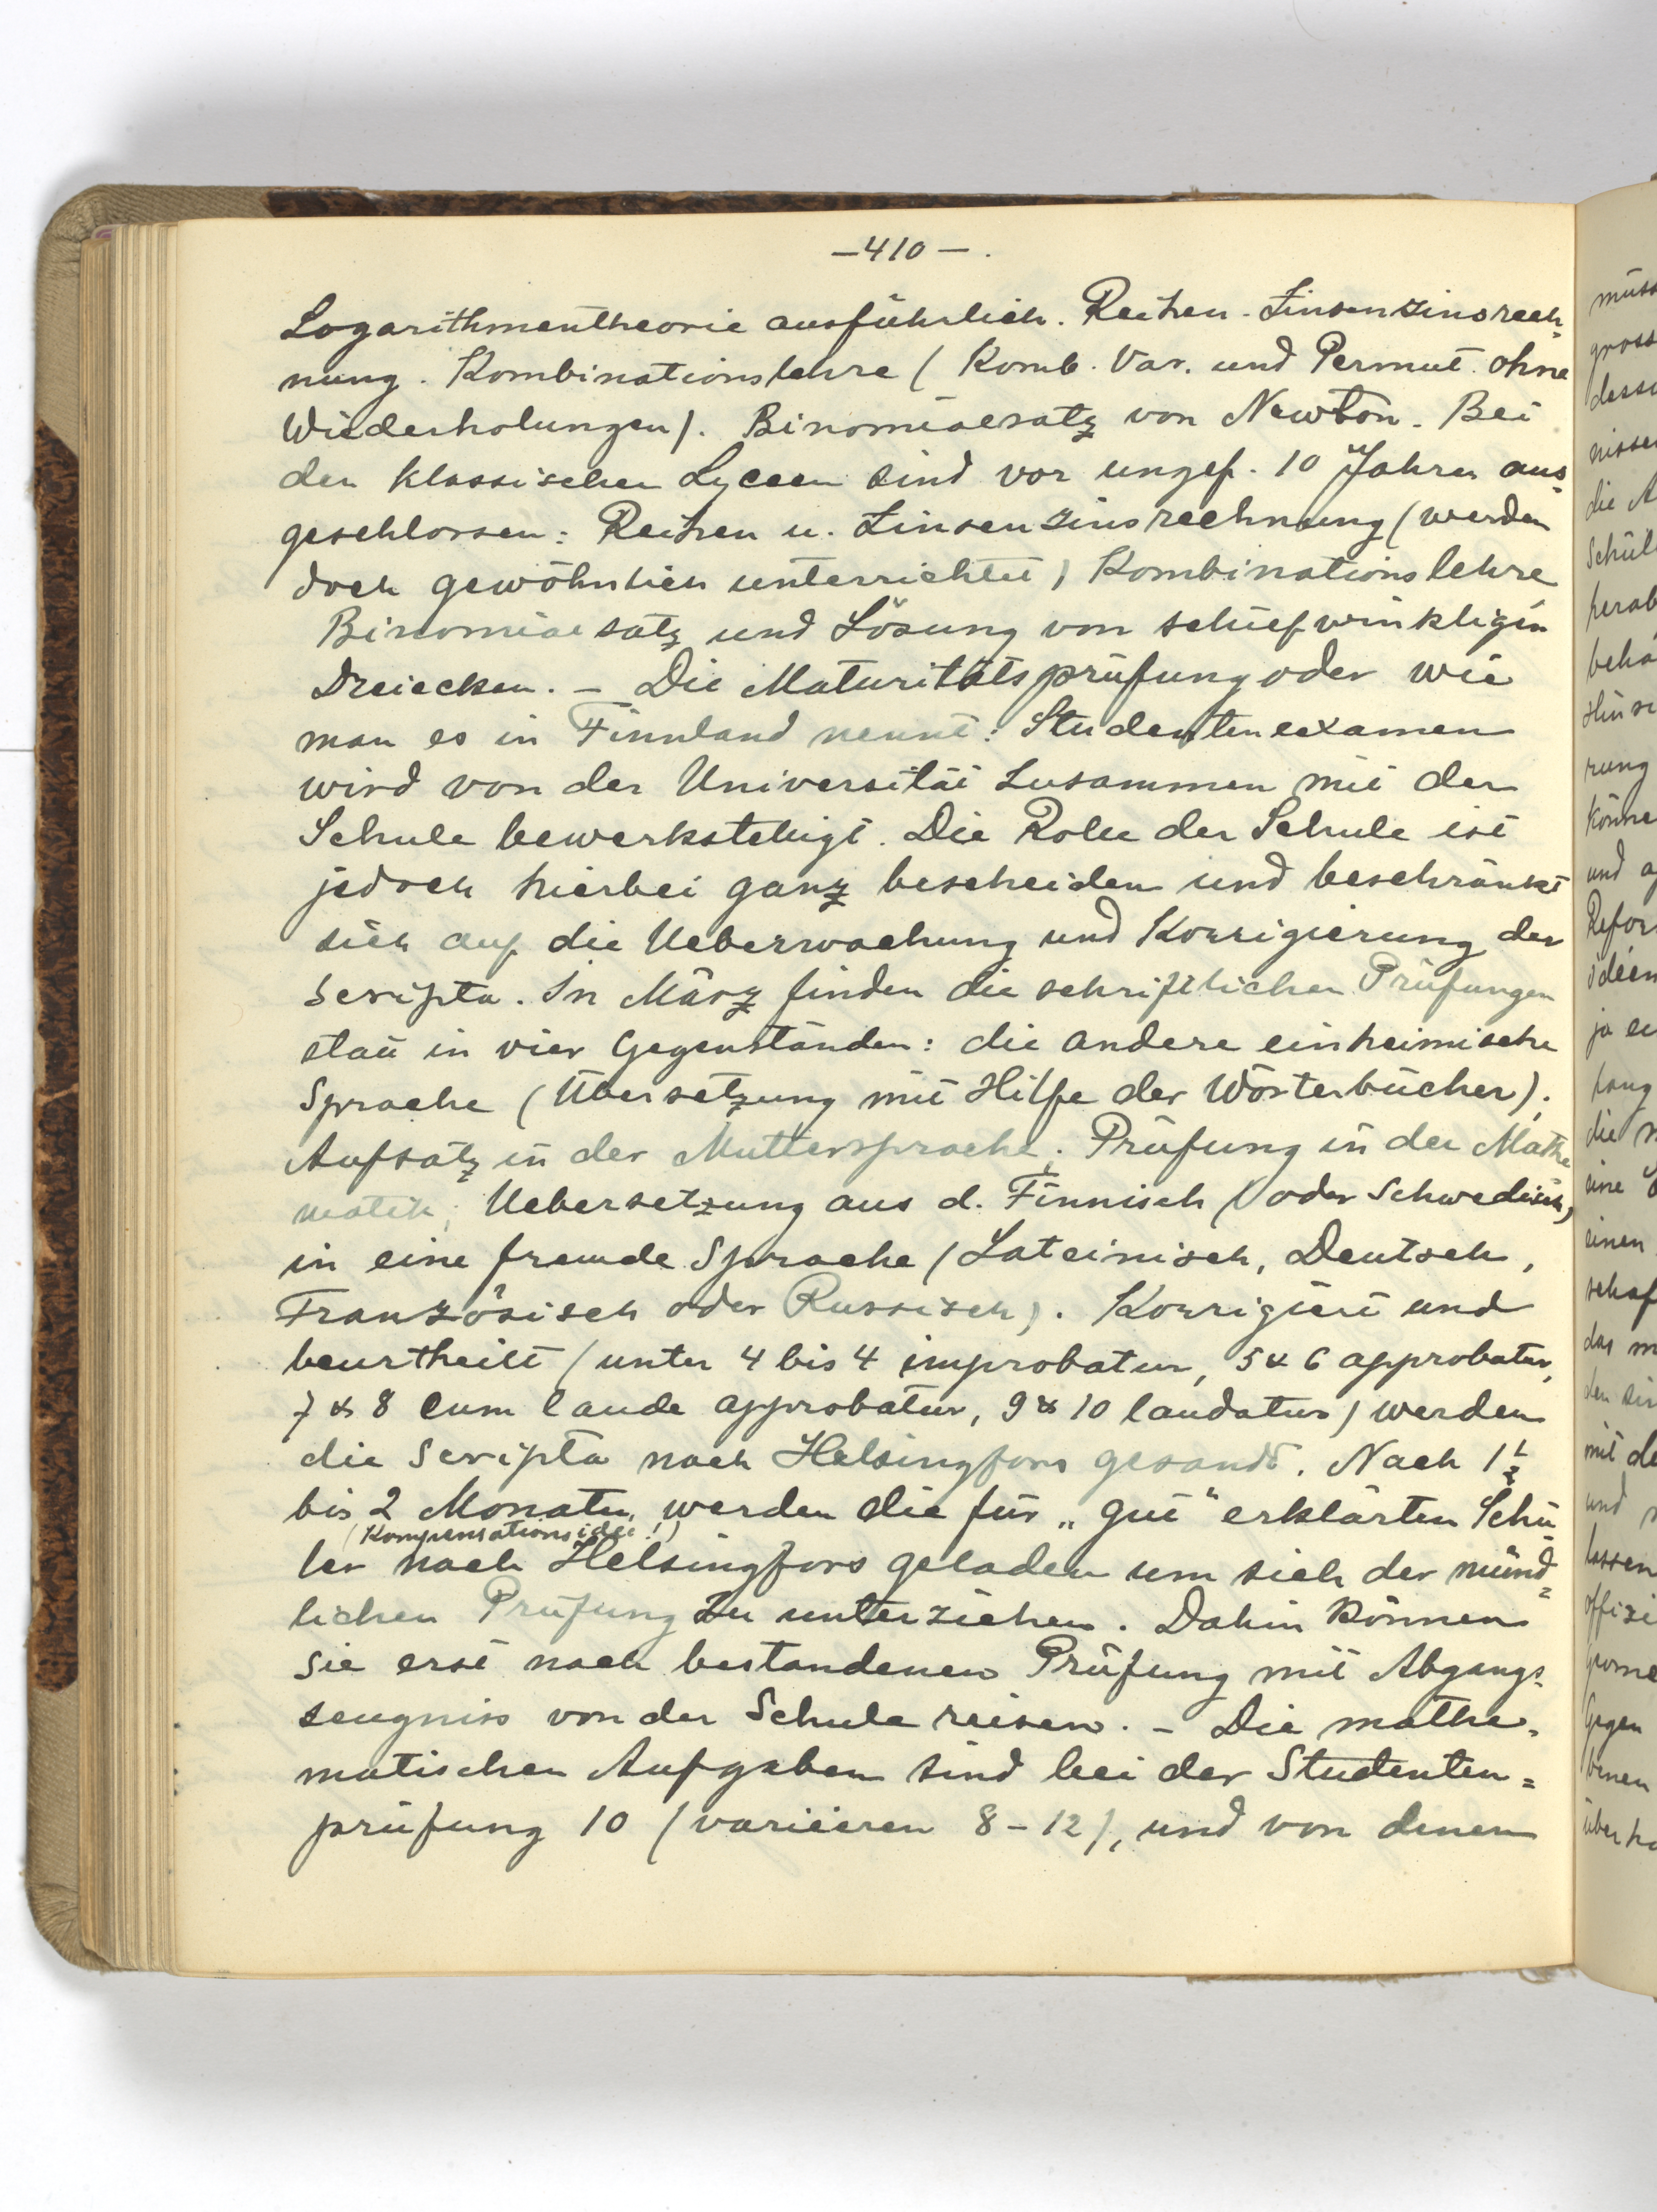 —410—.
Logarithmentheorie ausführlich. Reihen. Zinsenzinsrech=
nung. Kombinationslehre (Komb. Var. und Permut. ohne
Wiederholungen). Binomialsatz von Newton. Bei
den klassischen Lyceen sind vor ungef. 10 Jahren aus=
geschlossen: Reihen u. Zinsenzinsrechnung (werden
doch gewöhnlich unterrichtet) Kombinationslehre
Binomialsatz und Lösung von schiefwinkligen
Dreiecken. – Die Maturitätsprüfung oder wie
man es in Finnland nennt: Studentenexamen
wird von der Universität zusammen mit der
Schule bewerkstelligt. Die Rolle der Schule ist
jedoch hierbei ganz bescheiden und beschränkt
sich auf die Ueberwachung und Korrigierung der
Scripta. In März finden die schriftlichen Prüfungen
statt in vier Gegenständen: die andere einheimische
Sprache (Übersetzung mit Hilfe der Wörterbücher);
Aufsatz in der Muttersprache; Prüfung in der Mathe
matik; Uebersetzung aus d. Finnisch (oder Schwedisch)
in eine fremde Sprache (Lateinisch, Deutsch,
Französisch oder Russisch). Korrigiert und
beurtheilt (unter 4 bis 4 improbatur, 5 & 6 approbatur,
7 & 8 cum laude approbatur, 9 & 10 laudatur) werden
die Scripta nach Helsingfors gesandt. Nach 1½
bis 2 Monaten werden die für „gut“ erklärten Schü
(Kompensationsidee!)
ler nach Helsingfors geladen um sich der münd=
lichen Prüfung zu unterziehen. Dahin können
sie erst nach bestandenen Prüfung mit Abgangs=
zeugniss von der Schule reisen. – Die mathe=
matischen Aufgaben sind bei der Studenten=
prüfung 10 (variieren 8–12), und von denen